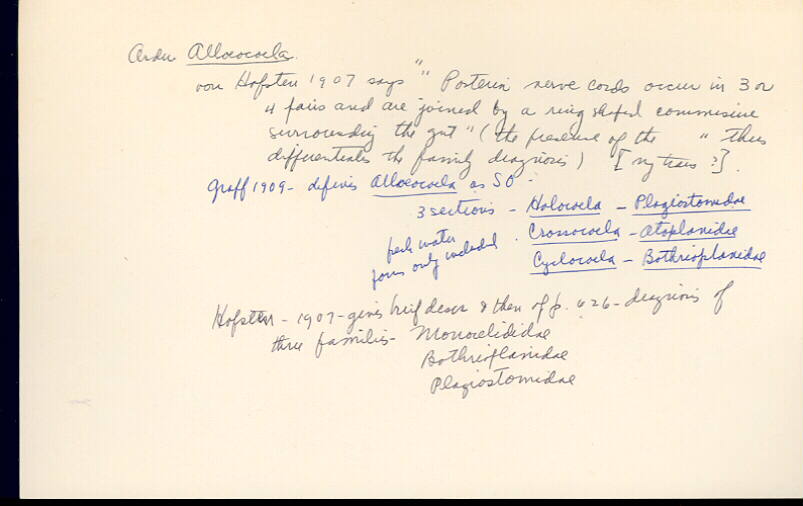 Order Alloeocoela.
von Hofsten 1907 says " Posterior nerve cords occur in 3 or
4 pairs and are joined by a ring shaped commissure
surrounding the gut " (the presence of the " thus
differentiates the family diagnosis) [my trans ?].
Graff 1909 - defines Alloeocoela as SO -
3 sections - Holocoela - Plagiostomidae
fresh water . Crossocoela - Otoplanidae
forms only included Cyclocoela - Bothrioplanidae
Hofsten - 1907 - gives brief descr & then of p. 626 - diagnosis of
three families - Monocelididae
Bothrioplanidae
Plagiostomidae